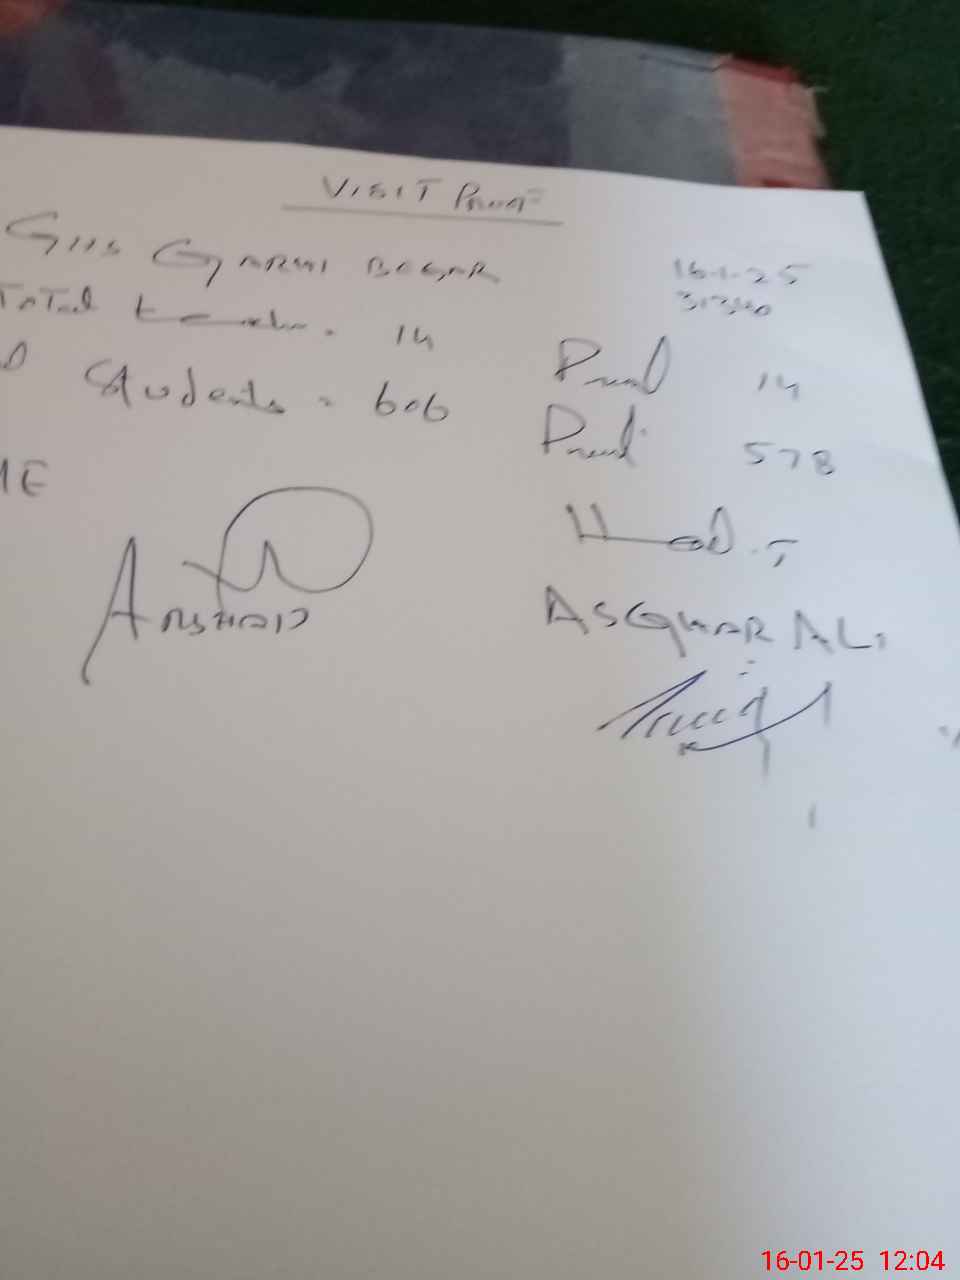 VISIT PROOF
GHS GARHI BEGAR 16-1-25
Total 14 31340
Students = 606 14
578
ME Head.T
ARSHAD ASGHAR ALI
16-01-25 12:04